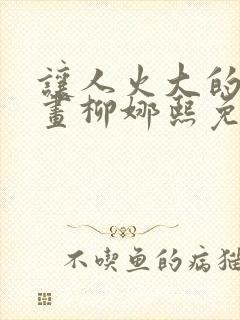 讓人火大的
畫柳娜熙免
不喫魚的病猫